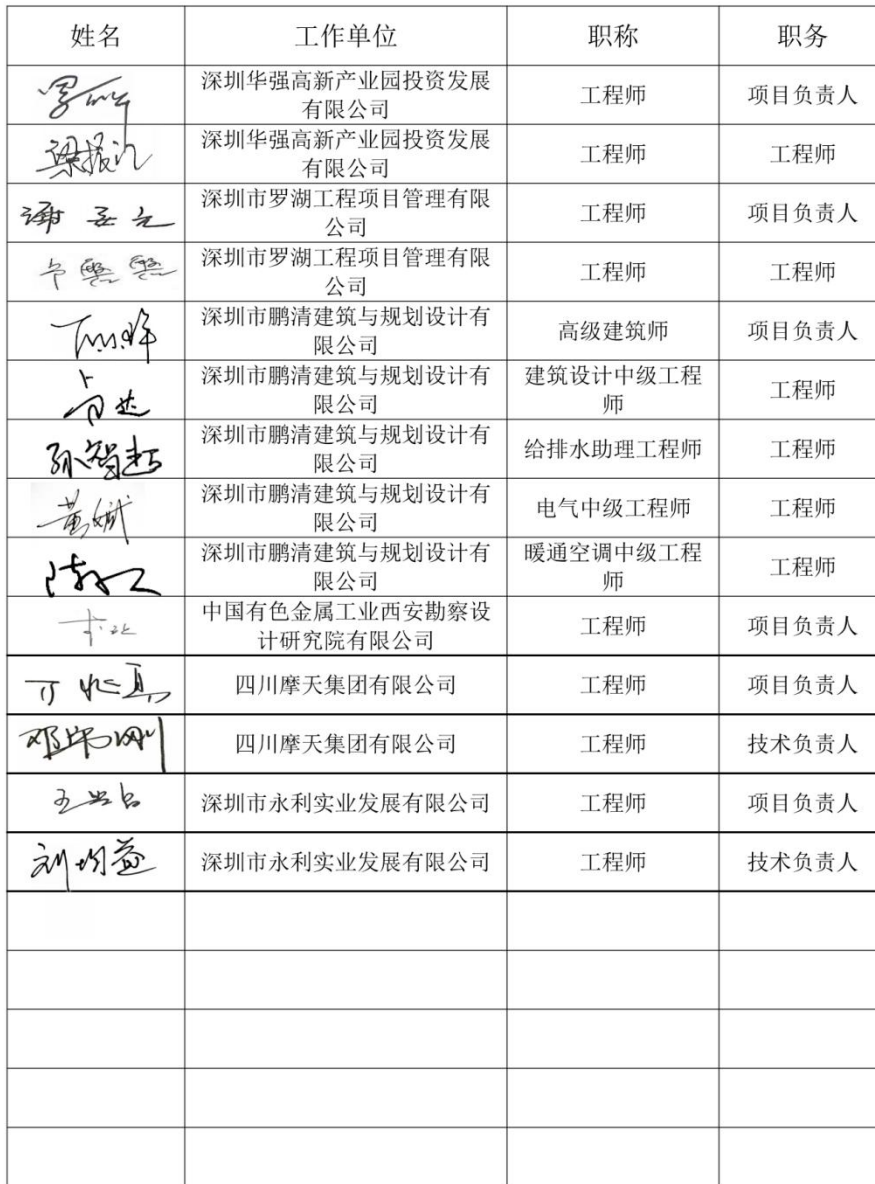 姓名 工作单位 职称 职务
深圳华强高新产业园投资发展
有限公司 工程师 项目负责人
梁振
深圳华强高新产业园投资发展
有限公司 工程师 工程师
谢
深圳市罗湖工程项目管理有限
公司 工程师 项目负责人
深圳市罗湖工程项目管理有限
公司 工程师 工程师
深圳市鹏清建筑与规划设计有
限公司 高级建筑师 项目负责人
深圳市鹏清建筑与规划设计有
限公司 建筑设计中级工程
师 工程师
孙智超
深圳市鹏清建筑与规划设计有
限公司 给排水助理工程师 工程师
黄斌
深圳市鹏清建筑与规划设计有
限公司 电气中级工程师 工程师
深圳市鹏清建筑与规划设计有
限公司 暖通空调中级工程
师 工程师
中国有色金属工业西安勘察设
计研究院有限公司 工程师 项目负责人
四川摩天集团有限公司 工程师 项目负责人
邓 四川摩天集团有限公司 工程师 技术负责人
王 深圳市永利实业发展有限公司 工程师 项目负责人
刘均益 深圳市永利实业发展有限公司 工程师 技术负责人